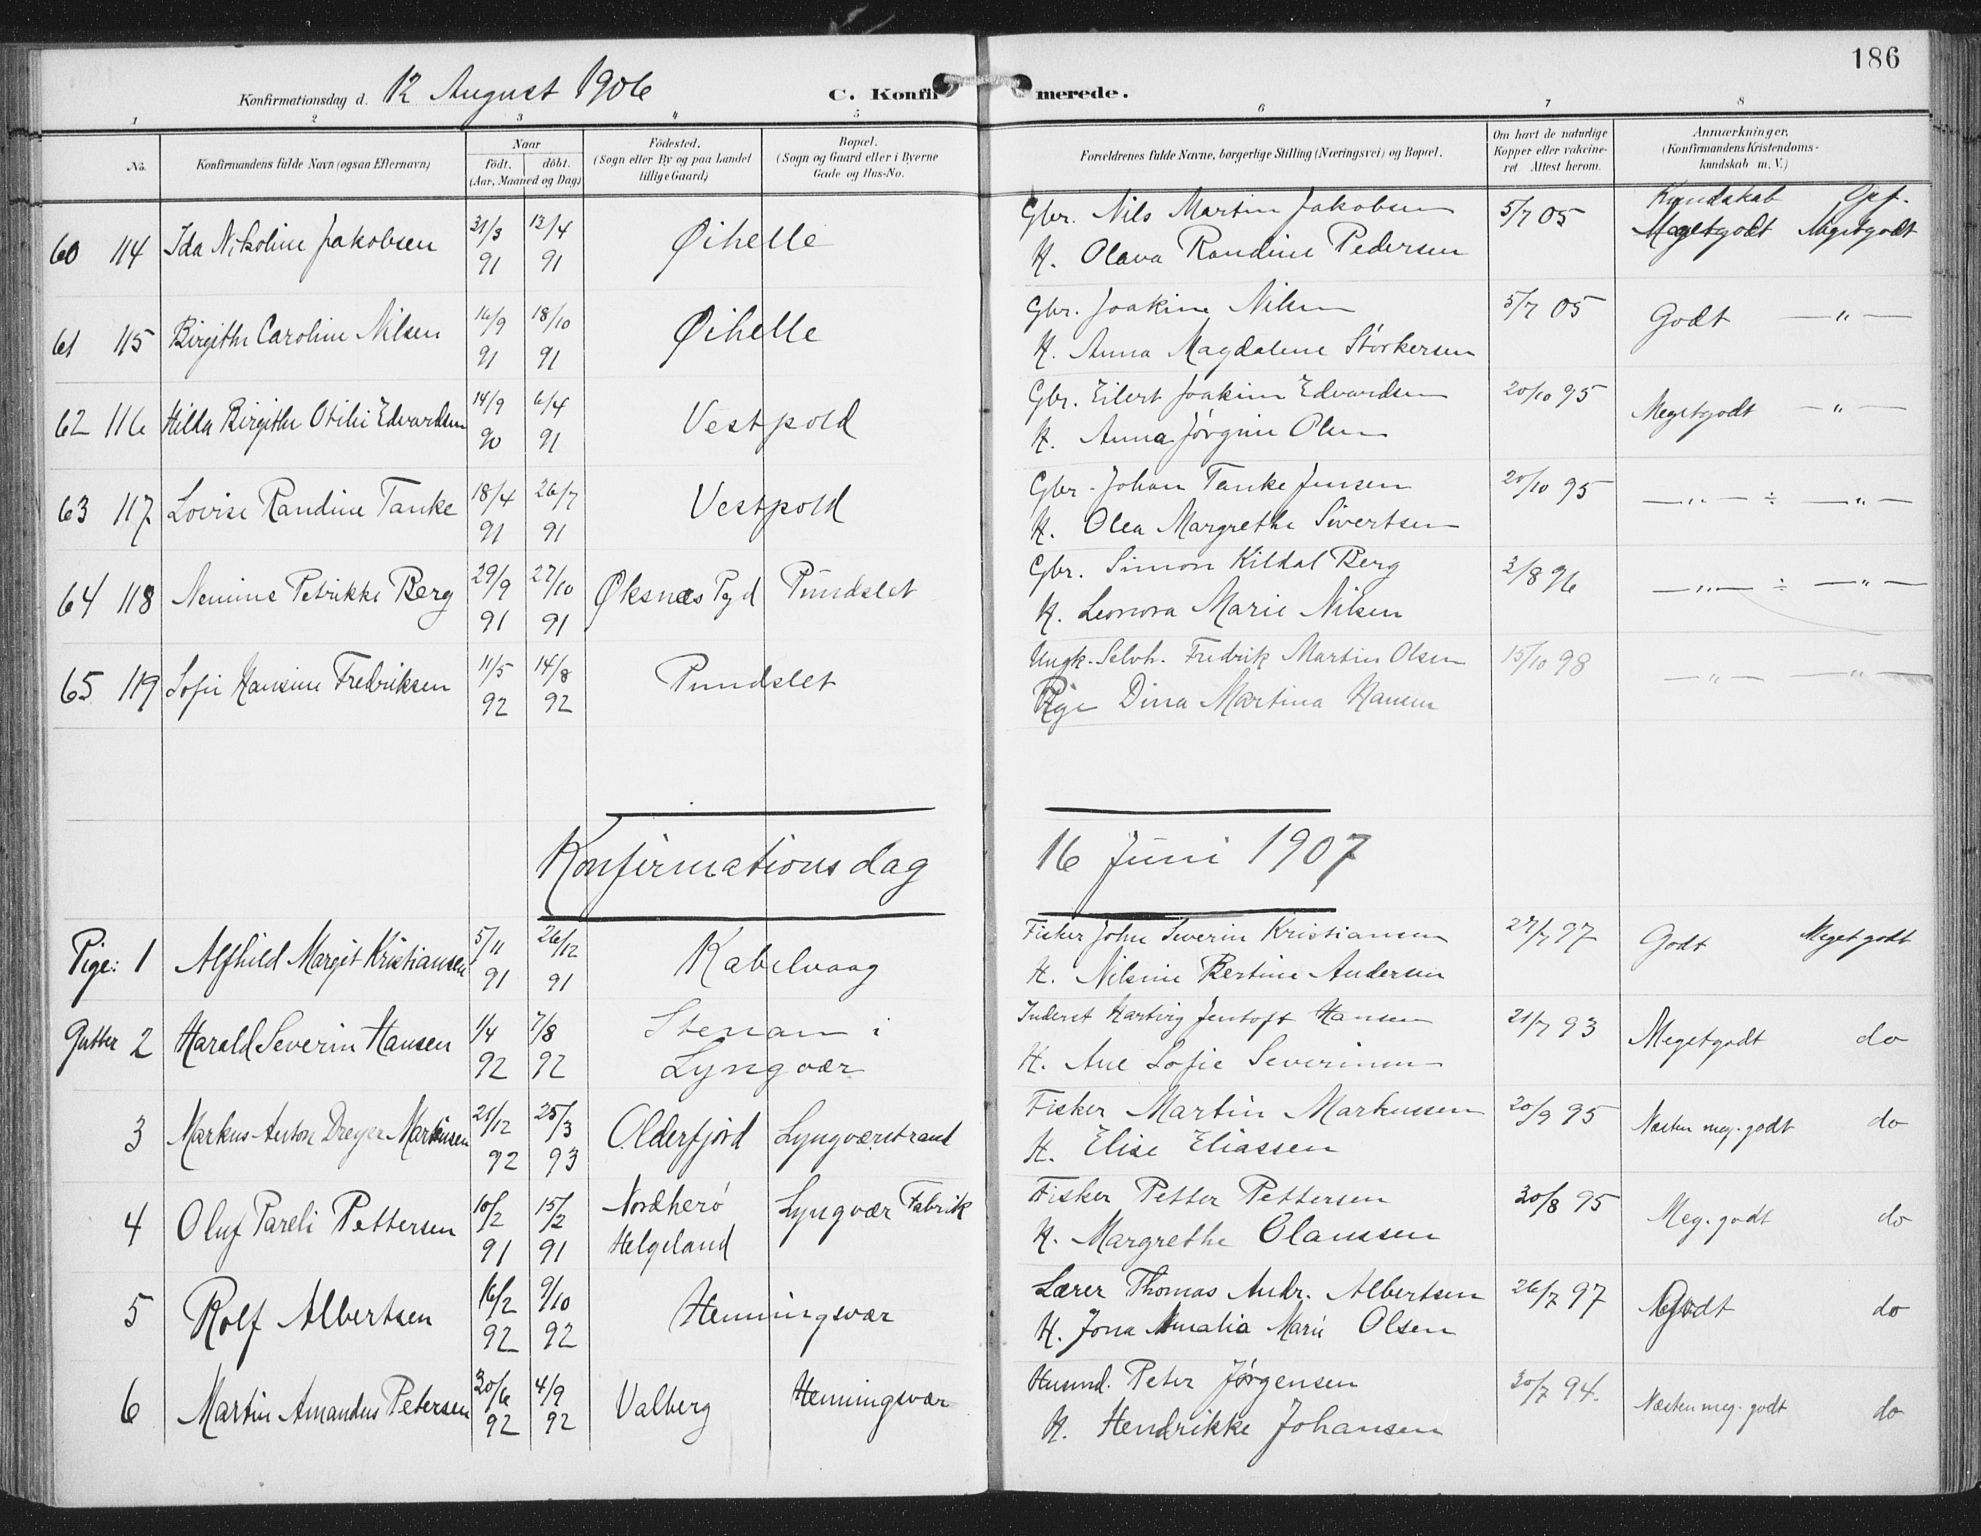 186
Konfirmationsdag d. 12 August 1906 C. Konfirmerede.
1 2 3 4 5 6 7 8
No. Konfirmandens fulde Navn (ogsaa Efternavn) Naar födt. döbt. (Aar, Maaned og Dag) Födested. (Sogn eller By og paa Landet tillige Gaard) Bopæl. (Sogn og Gaard eller i Byerne Gade og Hus-No. Forældrenes fulde Navne, borgerlige Stilling (Næringsvei) og Bopæl. Om havt de naturlige Kopper eller vaccineret. Attest herom. Anmærkninger. (Konfirmandens Kristendomskundskab m. V.)
Kundskab Opf.
60 114 Ida Nikoline Jakobsen 31/3 91 12/4 91 Øihelle Gbr. Nils Martin Jakobsen 5/7 05 Megetgodt Megetgodt
H. Olava Randine Pedersen
61 115 Birgithe Caroline Nilsen 16/9 91 18/10 91 Øihelle Gbr. Joakim Nilsen 5/7 05 Godt — " —
H. Anna Magdalene Störkersen
62 116 Hilda Birgithe Otilie Edvardsen 14/9 90 6/4 91 Vestpold Gbr. Eilert Joakim Edvardsen 20/10 95 Megetgodt — " —
H. Anna Jørgine Olsen
63 117 Lovise Randine Tanke 18/4 91 26/7 91 Vestpold Gbr. Johan Tanke Jensen 20/10 95 — " — ÷ — " —
H. Olea Margrethe Sivertsen
64 118 Nemine Petrikke Berg 29/9 91 27/10 91 Øksnæs Pgd Pundslet Gbr. Simon Kildal Berg 3/8 96 — " — ÷ — " —
H. Leonora Marie Nilsen
65 119 Sofie Hansine Fredriksen 11/5 92 14/8 92 Pundslet Ungk. Selvh. Fredrik Martin Olsen 15/10 98 — " — — " —
Pige Dina Martina Hansen
Konfirmationsdag 16 Juni 1907
Pige: 1 Alfhild Margit Kristiansen 5/11 91 26/12 91 Kabelvaag Fisker John Severin Kristiansen 27/7 97 Godt Meget godt
H. Nilsine Bertine Andersen
Gutter 2 Harald Severin Hansen 1/4 92 7/8 92 Stenan i Lyngvær Inderst Hartvig Jentoft Hansen 21/7 93 Megetgodt do
H. Ane Sofie Severinsen
3 Markus Anton Dreyer Markusen 21/12 92 25/3 93 Olderfjord Lyngværstrand Fisker Martin Markussen 20/9 95 Næsten meg. godt do
H. Elise Eliassen
4 Oluf Pareli Pettersen 10/2 91 15/2 91 Nordherö Helgeland Lyngvær Fabrik Fisker Petter Pettersen 30/8 95 Meg. godt do
H. Margrethe Olaussen
5 Rolf Albertsen 16/2 92 9/10 92 Henningsvær Lærer Thomas Andr. Albertsen 26/7 97 Godt do
H. Jona Amalia Marie Olsen
6 Martin Amandus Petersen 30/6 92 4/9 92 Valberg Henningsvær Husmd. Peter Jørgensen 30/7 94. Næsten meg. godt do
H. Hendrikke Johansen